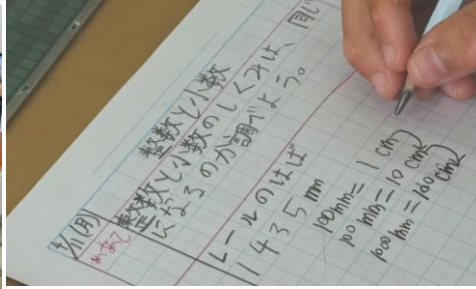 4/11(月)
整数と小数
めあて
整数と小数のしくみは、同じ
になるのか調べよう。
レールのはば
1435mm
100mm=1cm
100mm=10cm
1000mm=100cm